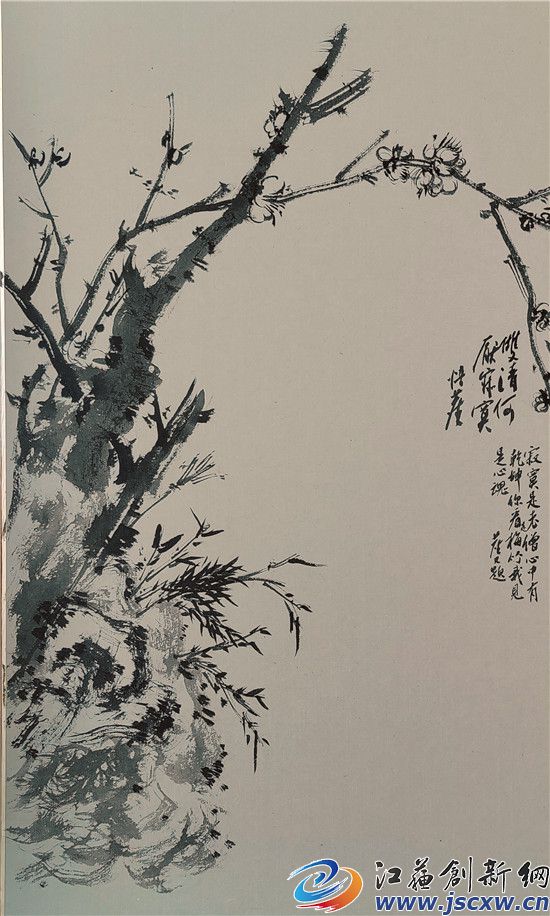 雙清何
厭寂寞
悟崖
寂寞是老僧心中有
乾坤你看是梅竹我見
是心魂 崖又題
江蘇創新網
www.jscxw.com